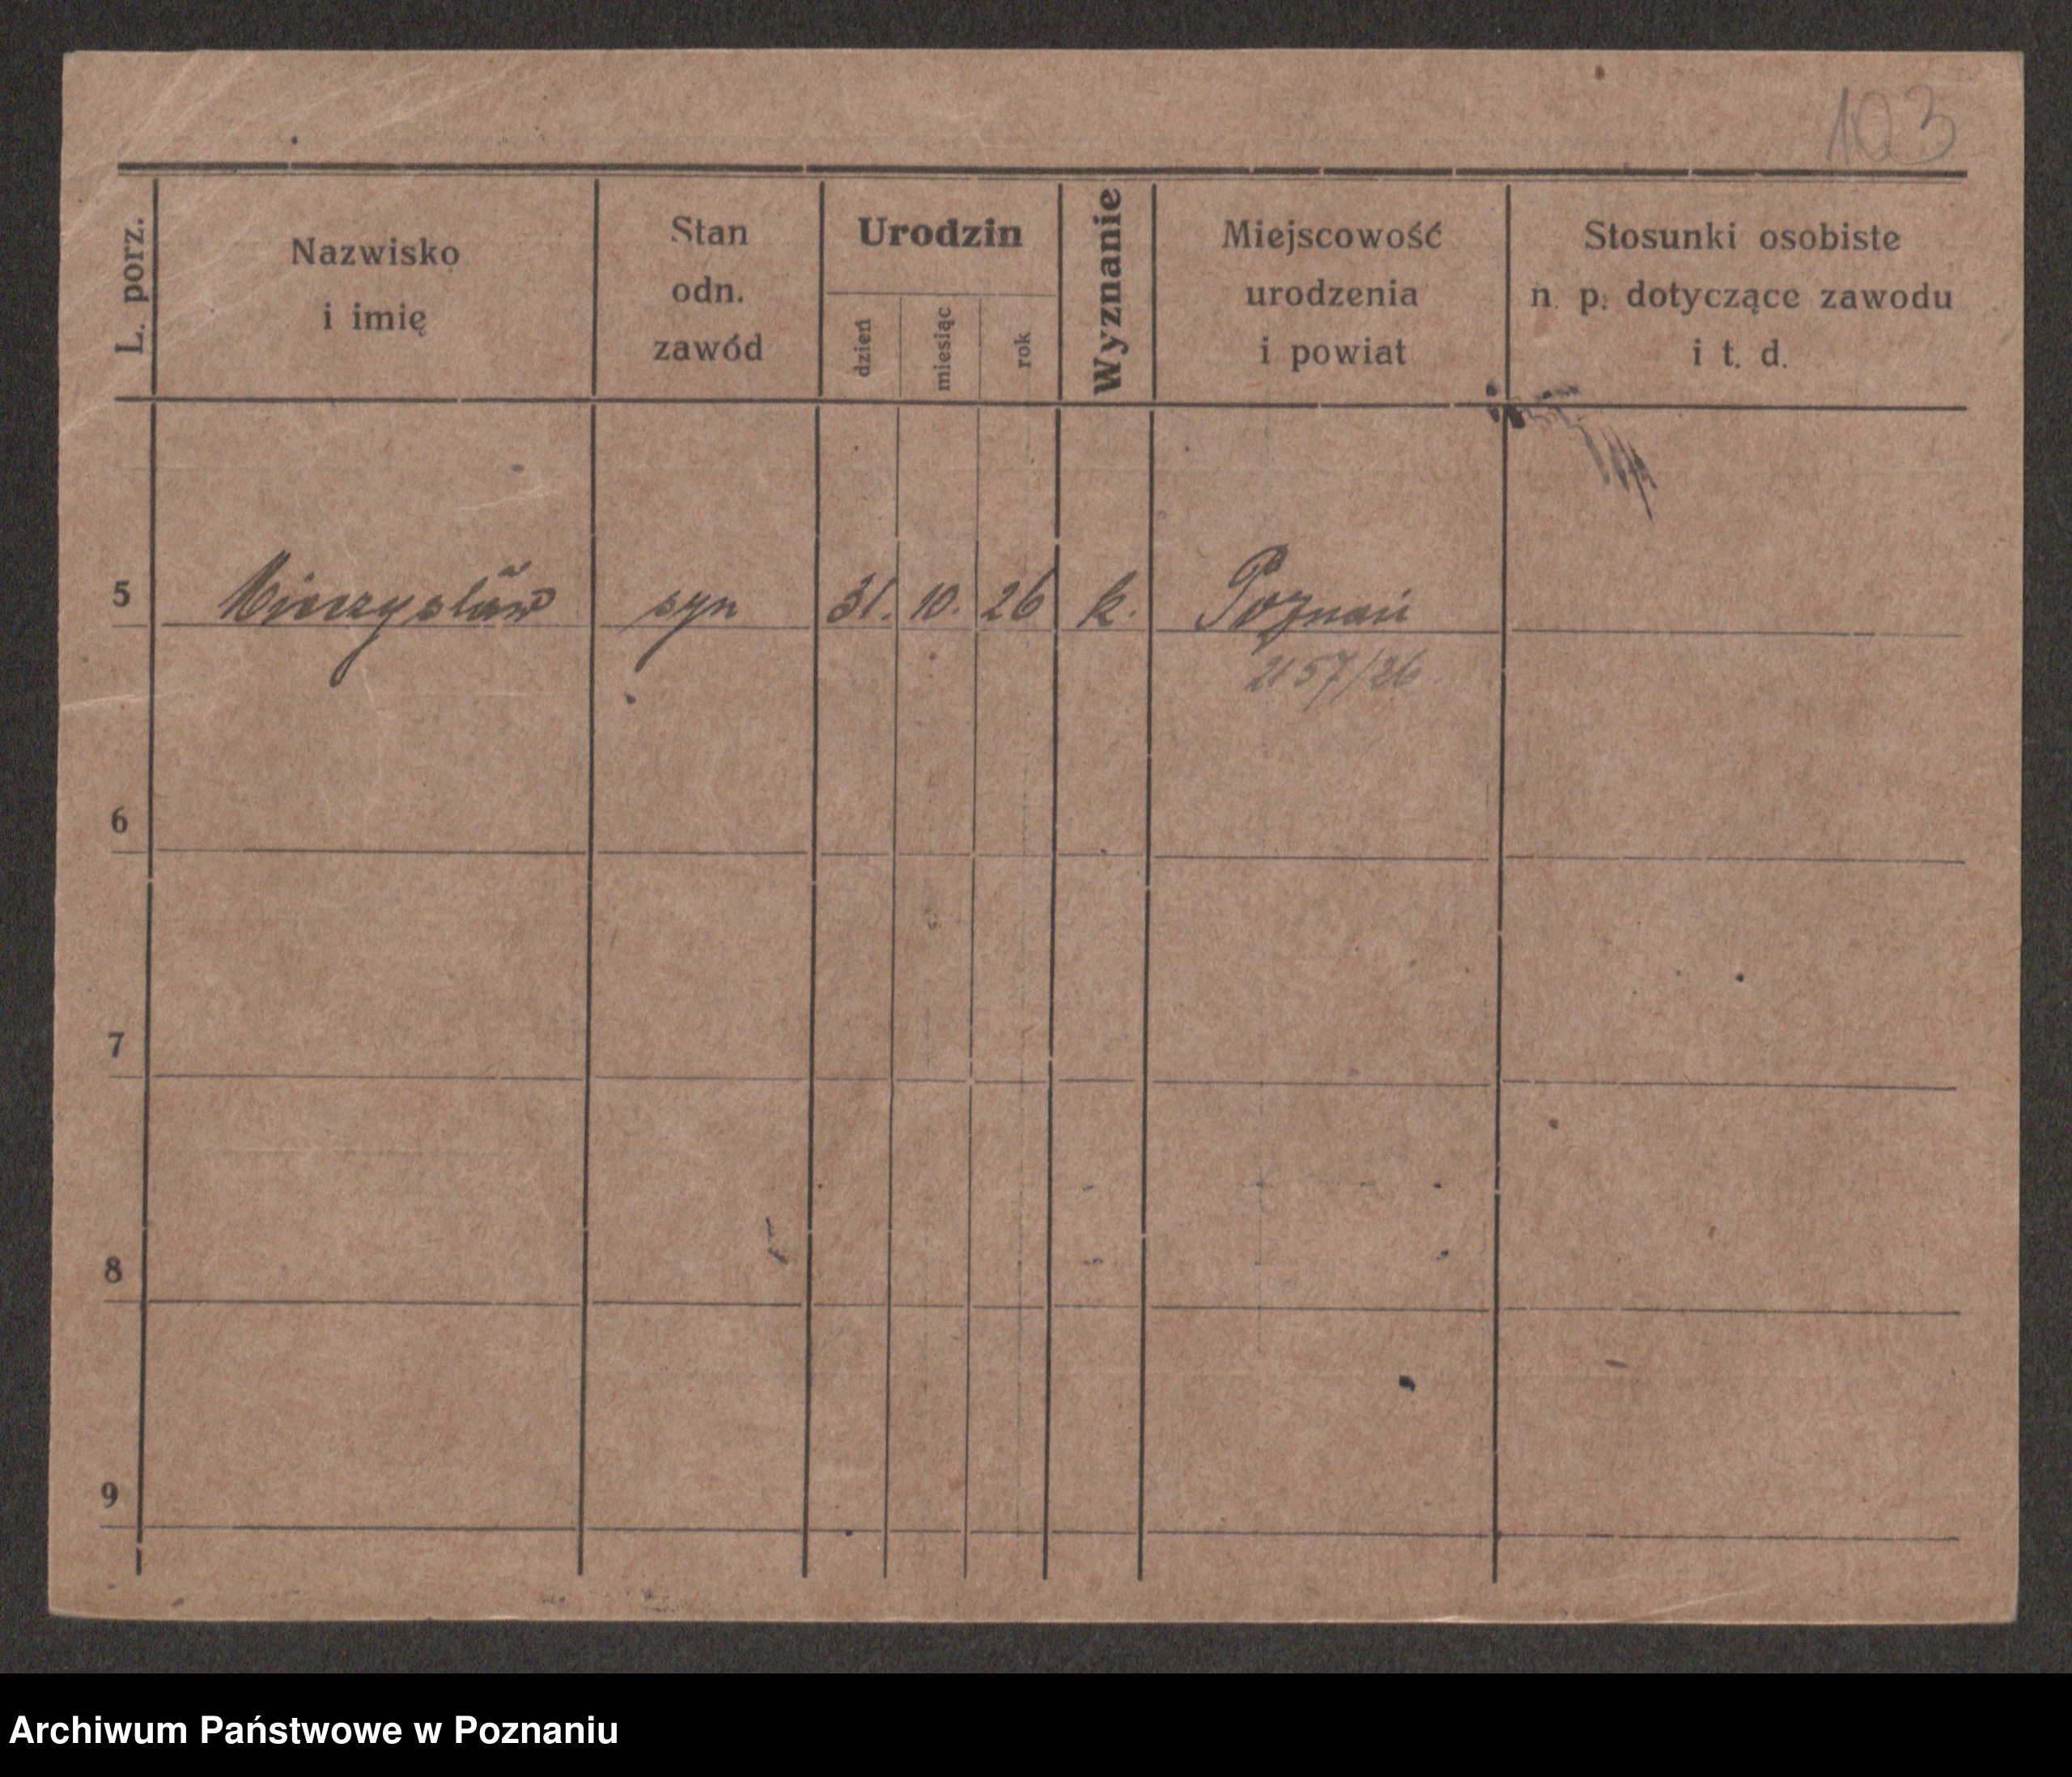 103
L. porz.
Nazwisko
i imię
Stan
odn.
zawód
Urodzin
dzień
miesiąc
rok
Wyznanie
Miejscowość
urodzenia
i powiat
Stosunki osobiste
n. p. dotyczące zawodu
i t. d.
5 Mieczysław syn 31. 10. 26 k. Poznań
2157/26
6
7
8
9
Archiwum Państwowe w Poznaniu